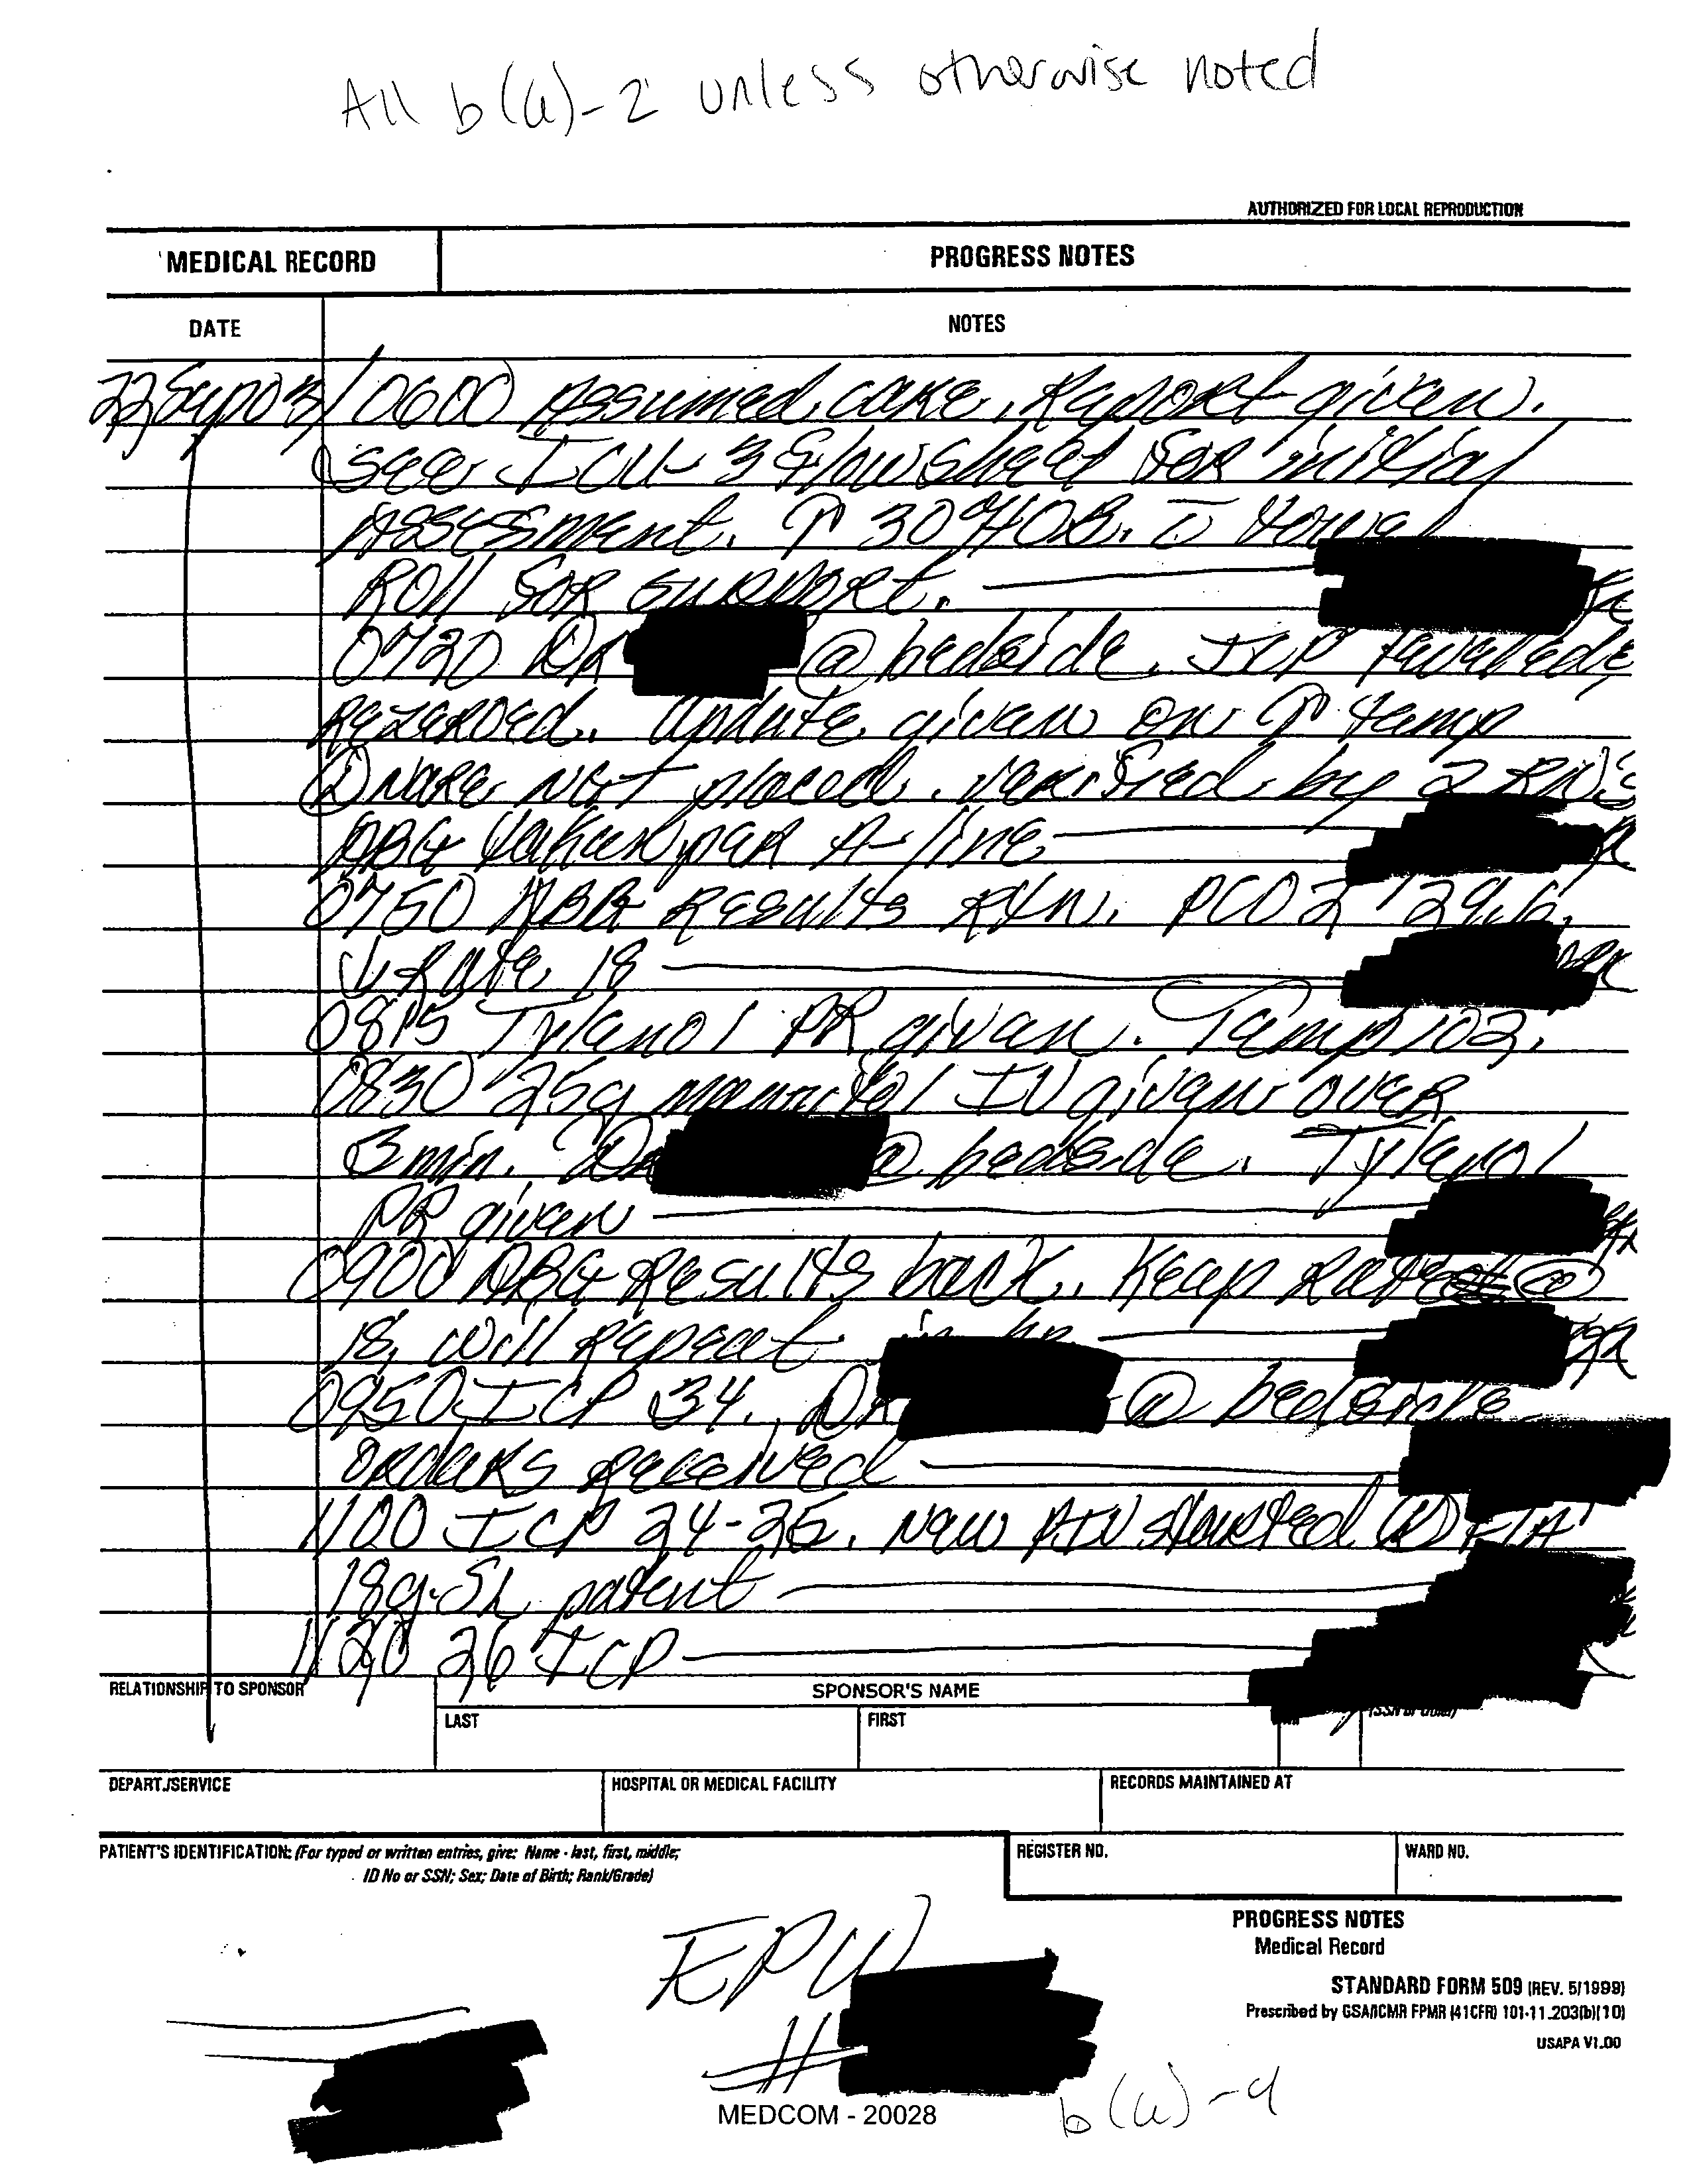 All b(6)-2 unless otherwise noted
AUTHORIZED FOR LOCAL REPRODUCTION
MEDICAL RECORD
PROGRESS NOTES
DATE
NOTES
22 Sep 03/0600 Assumed care. Report given.
see ICU-3 flowsheet for initial
Assessment. ↑ 30° HOB. c̄ towel
Roll for support.
0720 DR @ bedside. ICP
Rezeroed. Update given on ↑ temp
nare NGT placed. verified by 2 RN's
ABG taken per A-line
0750 ABG Results RTN. PCO2 29.6.
↓ Rate 18
0815 Tylenol PR given. Temp 102.
0830 25g mannitol IV given over
3 min. DR @ bedside. Tylenol
PR given
0900 ABG Results back. Keep Rate @
18, will repeat in hr
0950 ICP 34. DR @ bedside
orders received
1100 ICP 24-26. New PIV started FA
18g. SL patent
1120 26 ICP
RELATIONSHIP TO SPONSOR
SPONSOR'S NAME
LAST
FIRST
(SSN or Other)
DEPART./SERVICE
HOSPITAL OR MEDICAL FACILITY
RECORDS MAINTAINED AT
PATIENT'S IDENTIFICATION: (For typed or written entries, give: Name - last, first, middle;
ID No or SSN; Sex; Date of Birth; Rank/Grade)
REGISTER NO.
WARD NO.
PROGRESS NOTES
Medical Record
STANDARD FORM 509 (REV. 5/1999)
Prescribed by GSA/ICMR FPMR (41CFR) 101-11.203(b)(10)
USAPA V1.00
EPW
#
b(6)-4
MEDCOM - 20028